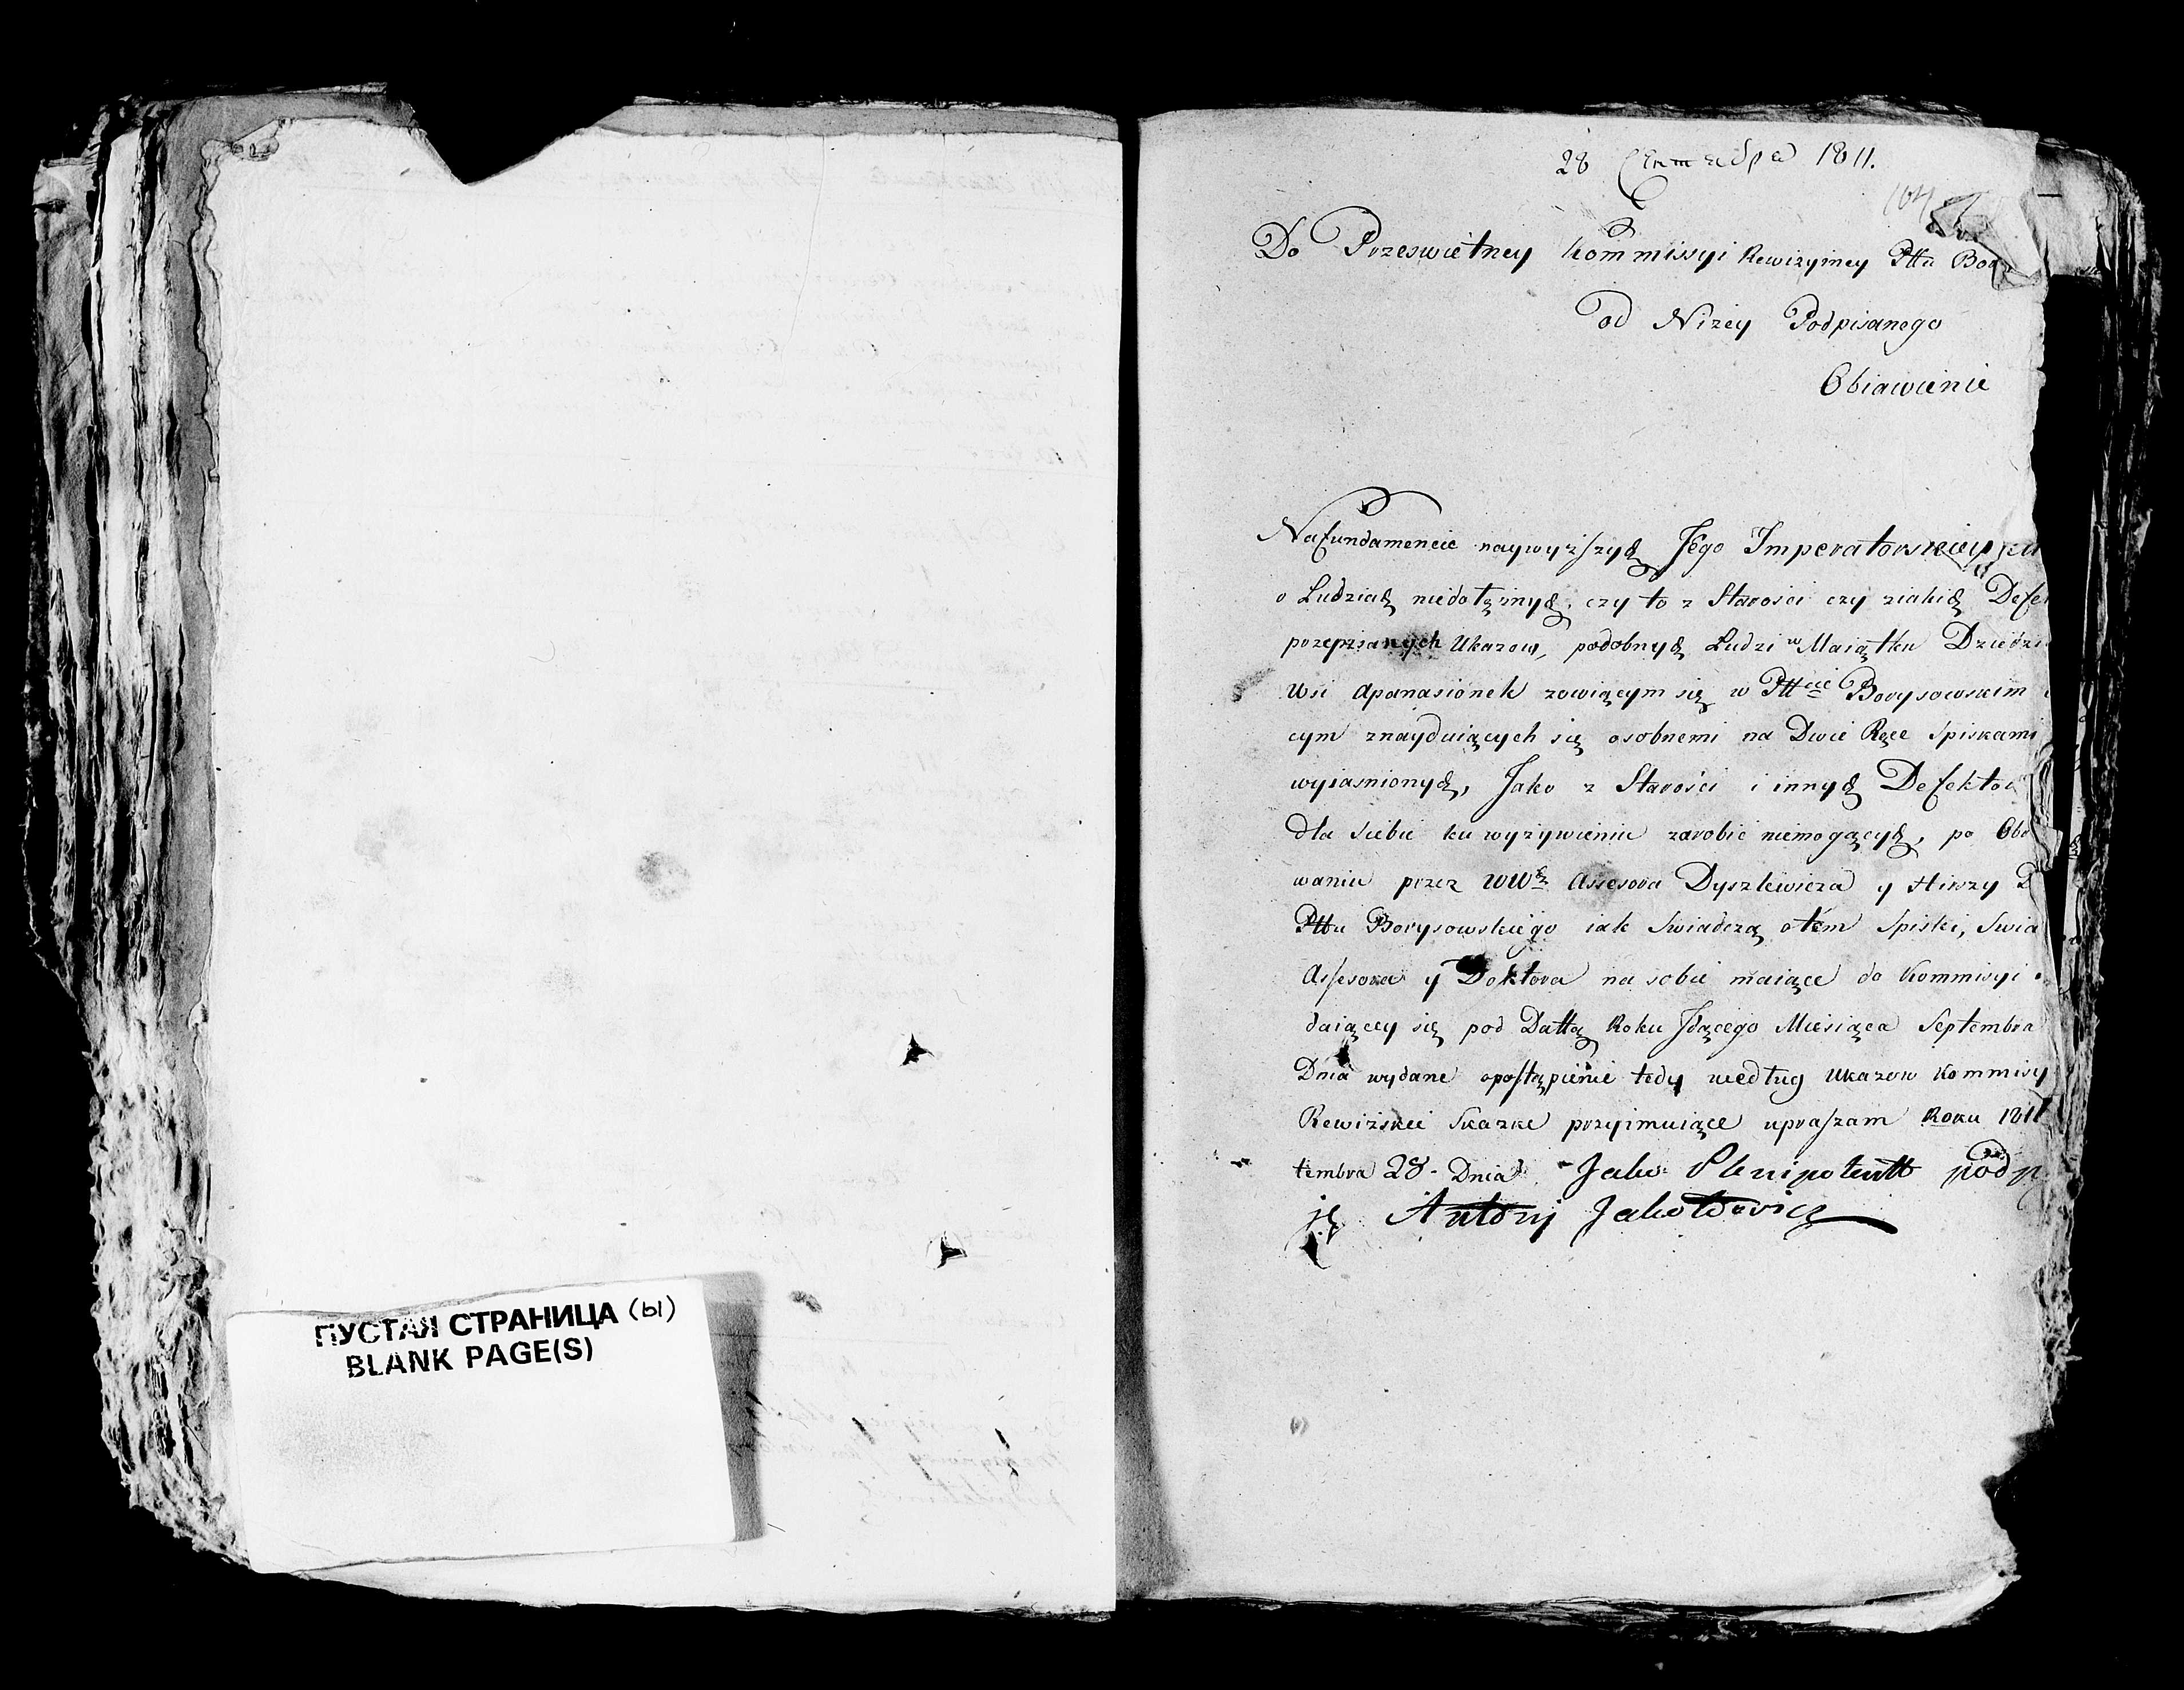 ПУСТАЯ СТРАНИЦА (ы)
BLANK PAGE(S)
28 Сентября 1811.
104
Do Przeswietney Kommissyi Rewizyiney Pttu Bor
od Nizey Podpisanego
Obiawienie
Na fundamencie naywyzszych Jego Imperatorskiey
o Ludziach niedołężnych, czy to z Starosci czy z iakich Defe
przepisanych Ukazow, podobnych Ludzi w Maiątku Dziedzi
Wsi Apanasionek zowiącym się w Pttcie Borysowskim
cym znayduiących się osobnemi na Dwie Ręce Spiskami
wyiasnionych, Jako z Starości i innych Defektow
dla siebie ku wyżywieniu zarobić niemogących, po Obo
waniu przez WWch Assesora Dyszlewicza y
Pttu Borysowskiego iak Swiadczą o tém Spiski, Swia
Assesora y Doktora na sobie maiące do Kommisyi
daiącey się pod Dattą Roku Jdącego Miesiąca Septembra
Dnia wydane o postąpienie tedy według Ukazow Kommisy
Rewizskie Skazke przyimuiące upraszam Roku 1811
tembra 28 - Dnia. Jako Plenipotentt podp
ję Antoni Jakołowicz